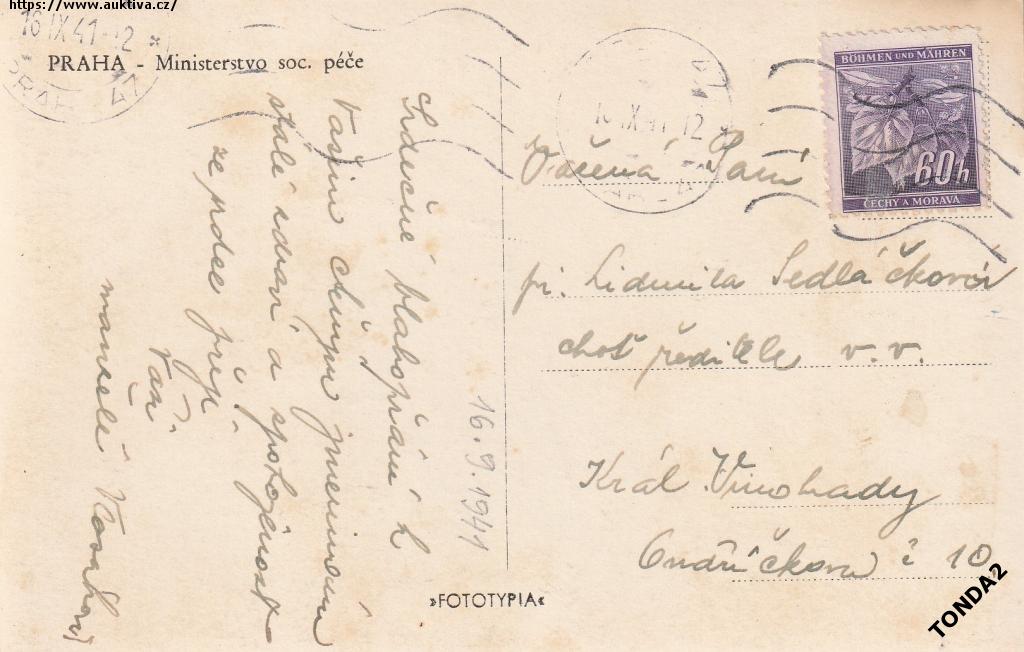 https://www.auktiva.cz/
16 IX 41-12
PRAHA - Ministerstvo soc. péče
16.9.1941
Srdečné blahopřání k
Vašim jmeninám
stálé zdraví a spokojenost
ze srdce přejí
Vaši
manželé
16 IX 41-12
BÖHMEN UND MÄHREN
60h
ČECHY A MORAVA
Vážená Paní
pí. Lidmila Sedláčková
choť ředitele v.v.
Král Vinohrady
Ondříčkova č 10
»FOTOTYPIA«
TONDA2